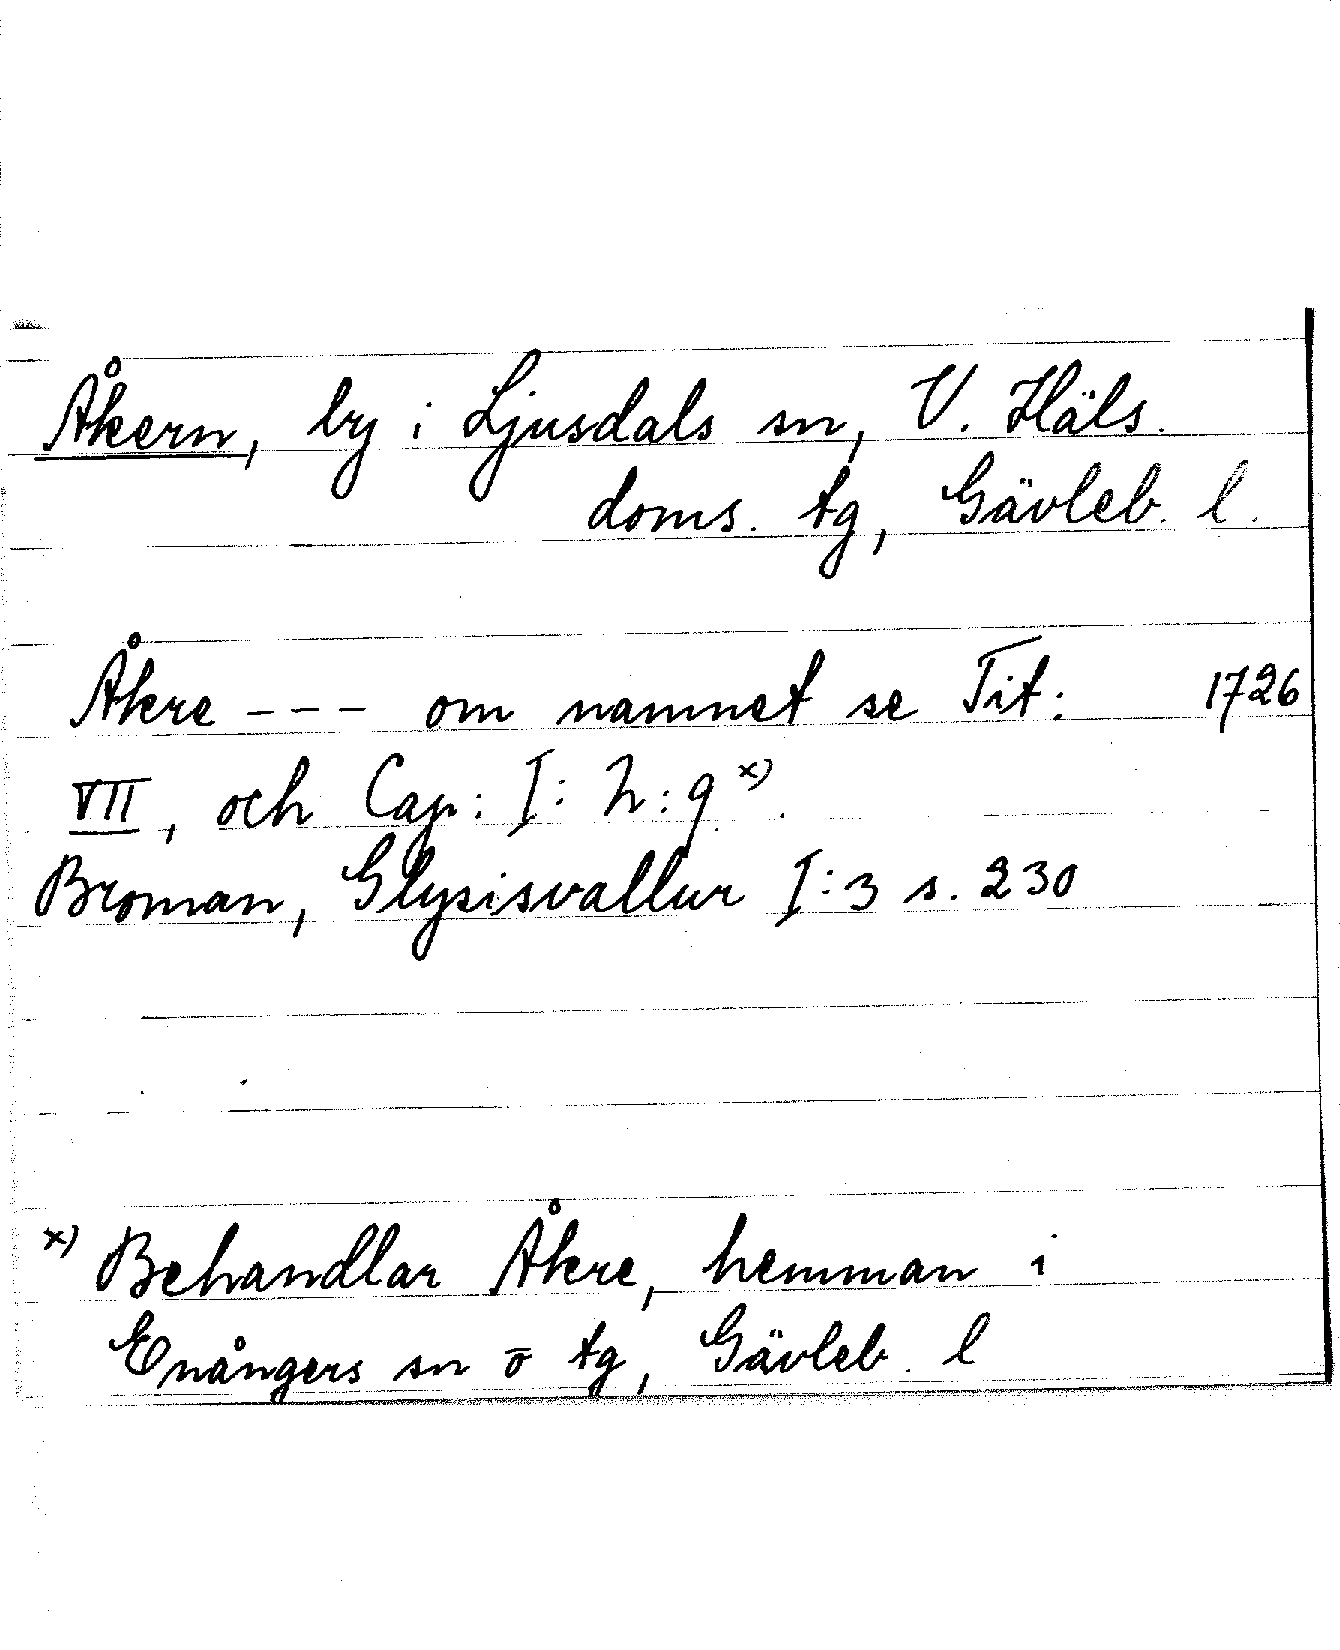 Åkern, by i Ljusdals sn, V. Häls.
doms. tg, Gävleb. l.
Åkre --- om namnet se Tit: 1726
VII, och Cap: I: h: q x)
Broman, Glysisvallur I:3 s. 230
x) Behandlar Åkre, hemman i
Enångers sn o tg, Gävleb. l